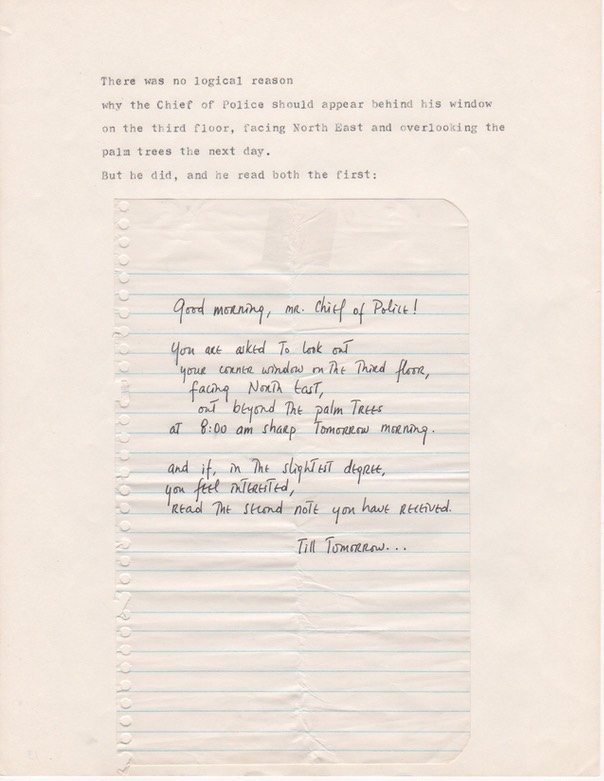 There was no logical reason
why the Chief of Police should appear behind his window
on the third floor, facing North East and overlooking the
palm trees the next day.
But he did, and he read both the first:
Good morning, mr. Chief of Police!
You are asked to look out
your corner window on the third floor,
facing North East,
out beyond the palm trees
at 8:00 am sharp tomorrow morning.
and if, in the slightest degree,
you feel interested,
read the second note you have received.
Till tomorrow...